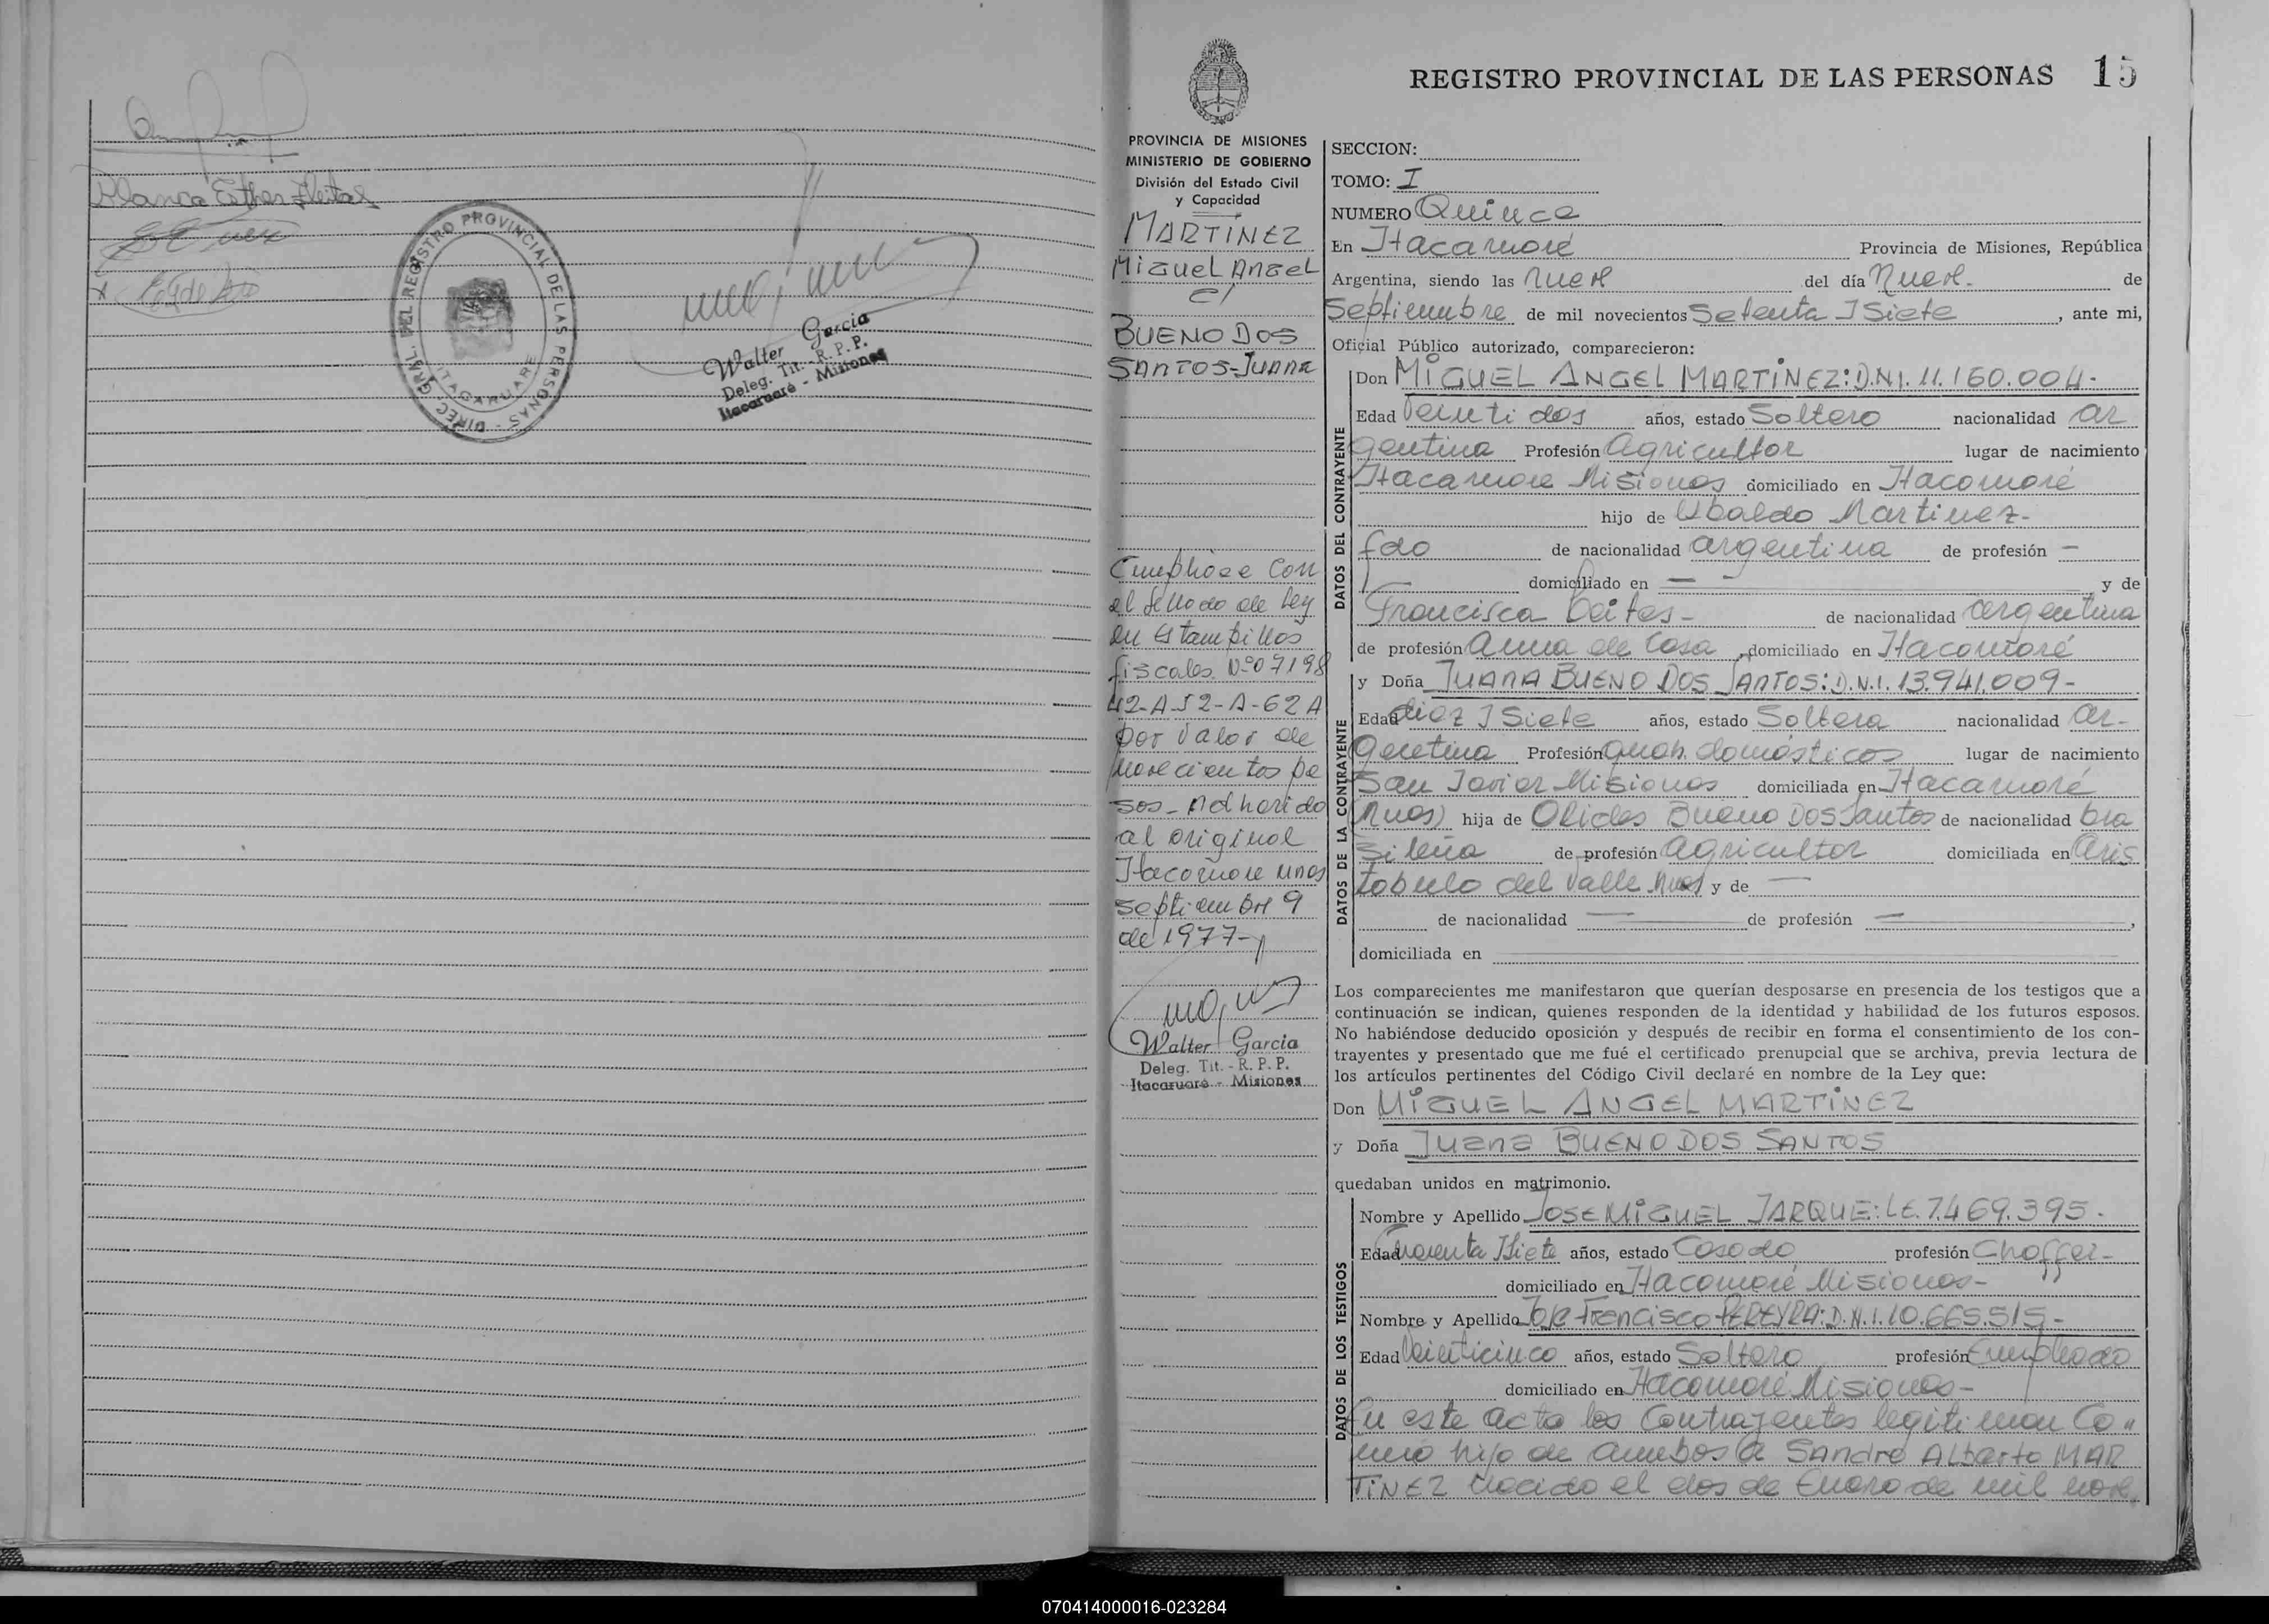 Blanca Esther Fleitas
DIREC. GRAL. DEL REGISTRO PROVINCIAL DE LAS PERSONAS -
ITACARUARE
Walter Garcia
Deleg. Tit. - R. P. P.
Itacaruaré - Misiones
REGISTRO PROVINCIAL DE LAS PERSONAS 15
PROVINCIA DE MISIONES
MINISTERIO DE GOBIERNO
División del Estado Civil
y Capacidad
MARTINEZ
Miguel Angel
c/
BUENO DOS
SANTOS-JUANA
Cumpliose con
el sellado de ley
en Estampillas
fiscales Nº 07198
42-A 52-A-62A
por valor de
novecientos pe
sos- Adherido
al original
Itacaruare Mnes
septiembre 9
de 1977-
Walter Garcia
Deleg. Tit. - R. P. P.
Itacaruaré - Misiones
SECCION:
TOMO: I
NUMERO Quince
En Itacaruaré Provincia de Misiones, República
Argentina, siendo las nueve del día nueve - de
Septiembre de mil novecientos Setenta y Siete , ante mi,
Oficial Público autorizado, comparecieron:
DATOS DEL CONTRAYENTE
Don MIGUEL ANGEL MARTINEZ: D.N.I. 11.160.004-
Edad Veinti dos años, estado Soltero nacionalidad ar
gentina Profesión Agricultor lugar de nacimiento
Itacaruare Misiones domiciliado en Itacaruaré
hijo de Ubaldo Martinez-
fdo de nacionalidad argentina de profesión -
domiciliado en — - y de
Francisca - de nacionalidad argentina
de profesión ama de Casa , domiciliado en Itacaruaré
DATOS DE LA CONTRAYENTE
y Doña JUANA BUENO DOS SANTOS: D.N.I. 13.941.009-
Edad diez y Siete años, estado Soltera nacionalidad ar-
gentina Profesión domésticos lugar de nacimiento
San Javier Misiones domiciliada en Itacaruaré
(Mnes) hija de Olides Bueno Dos Santos de nacionalidad bra
sileña de profesión Agricultor domiciliada en Aris
tobulo del Valle Mnes y de —
de nacionalidad — de profesión — ,
domiciliada en
Los comparecientes me manifestaron que querían desposarse en presencia de los testigos que a
continuación se indican, quienes responden de la identidad y habilidad de los futuros esposos.
No habiéndose deducido oposición y después de recibir en forma el consentimiento de los con-
trayentes y presentado que me fué el certificado prenupcial que se archiva, previa lectura de
los artículos pertinentes del Código Civil declaré en nombre de la Ley que:
Don MIGUEL ANGEL MARTINEZ
y Doña Juana BUENO DOS SANTOS
quedaban unidos en matrimonio.
DATOS DE LOS TESTIGOS
Nombre y Apellido JOSE MIGUEL JARQUE: L.E. 7.469.395.
Edad Cuarenta y Siete años, estado Casado profesión Choffer-
domiciliado en Itacaruaré Misiones-
Nombre y Apellido José Francisco PEREYRA: D.N.I. 10.665.515-
Edad Veinticinco años, estado Soltero profesión Empleado
domiciliado en Itacaruaré Misiones-
En este acto los Contrayentes legitiman Co"
mo hijo de ambos a Sandro Alberto MAR
TINEZ nacido el dos de Enero de mil nove
070414000016-023284